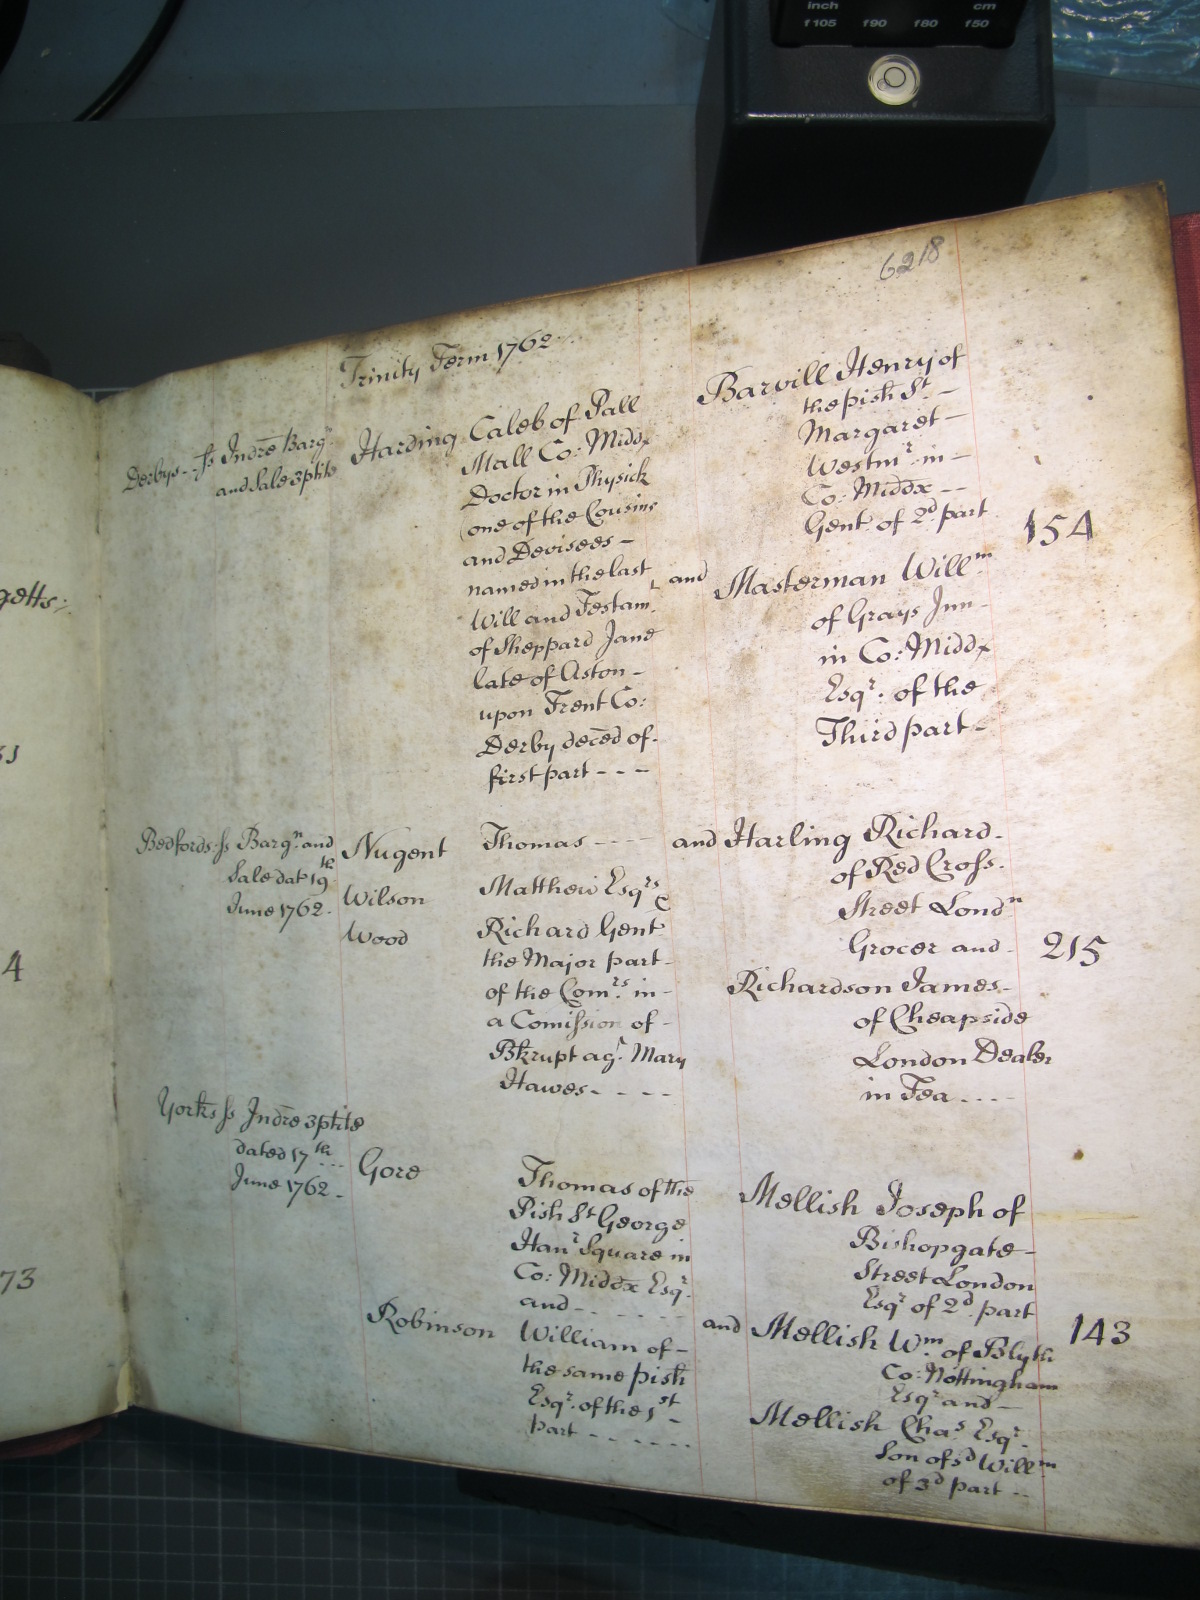 inch cm
f105 f90 f80 f50
6218
Trinity Term 1762
Derbys - ss Indre Bargn
and Sale 3ptite
Harding Caleb of Pall
Mall Co: Middx
Doctor in Physick
(one of the Cousins
and Devisees -
named in the last
Will and Testamt
of Sheppard Jane
late of Aston -
upon Trent Co:
Derby deced of
first part - - -
and
Barvill Henry of
the pish St -
Margaret -
Westmr in -
Co: Middx - -
Gent. of 2d part
Masterman Willm
of Grays Inn -
in Co: Middx
Esqr. of the
Third part -
154
Bedfords ss Bargn and
Sale dat 19th
June 1762 -
Nugent Thomas - - - -
Wilson Matthew Esqrs &
Wood Richard Gent
the Major part -
of the Comrs in -
a Comission of -
Bkrupt agt Mary
Hawes - - - -
and Harling Richard -
of Red Cross -
Street Londn
Grocer and -
Richardson James -
of Cheapside
London Dealer
in Tea - - - -
215
Yorks ss Indre 3ptite
dated 17th ...
June 1762 -
Gore Thomas of the
Pish St George
Hanr Square in
Co: Middx Esqr.
and - - - - - -
Robinson William of -
the same pish
Esqr. of the 1st -
part - - - - - -
and
Mellish Joseph of
Bishopgate -
Street London
Esqr of 2d part
Mellish Wm of Blyth
Co: Nottingham
Esqr and -
Mellish Chas Esqr.
Son of sd Willm
of 3d part - -
143
getts:
4
73